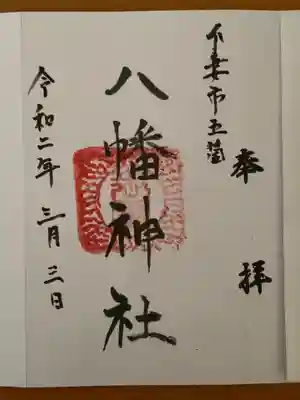 下妻市五箇
奉拝
八幡神社
令和二年三月三日